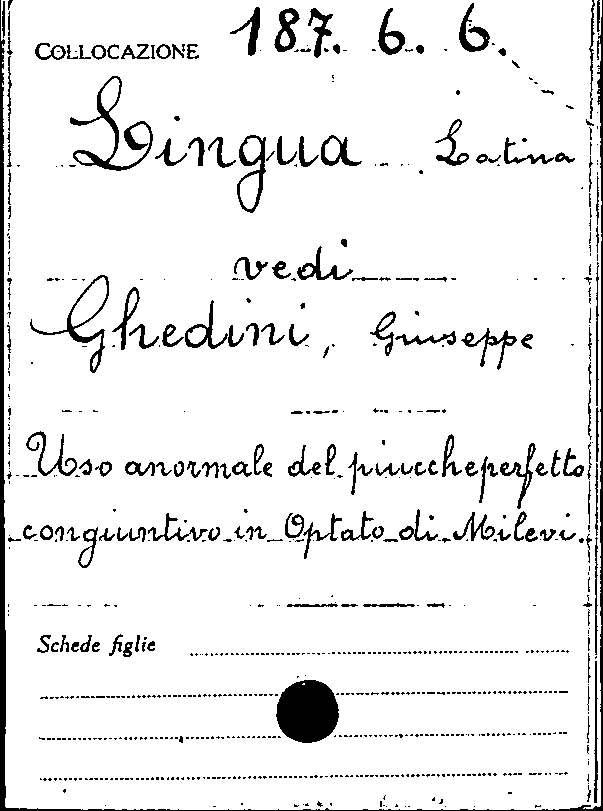 COLLOCAZIONE 187. 6. 6.
Lingua Latina
vedi
Ghedini, Giuseppe
Uso anormale del piuccheperfetto
congiuntivo in Optato di Milevi.
Schede figlie